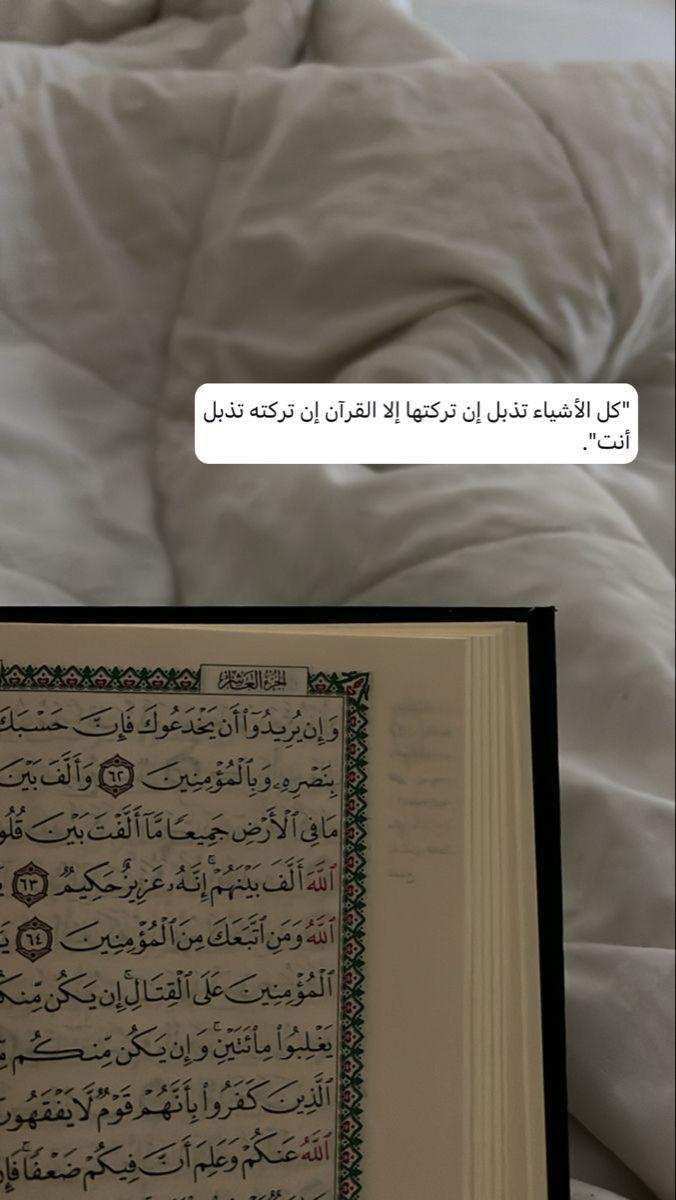 "كل الأشياء تذبل إن تركتها إلا القرآن إن تركته تذبل
أنت".
الجزء العاشر
وَإِن يُرِيدُوٓا۟ أَن يَخْدَعُوكَ فَإِنَّ حَسْبَكَ
بِنَصْرِهِۦ وَبِٱلْمُؤْمِنِينَ ٦٢ وَأَلَّفَ بَيْنَ
مَا فِى ٱلْأَرْضِ جَمِيعًا مَّآ أَلَّفْتَ بَيْنَ
ٱللَّهَ أَلَّفَ بَيْنَهُمْ ۚ إِنَّهُۥ عَزِيزٌ حَكِيمٌ ٦٣
ٱللَّهُ وَمَنِ ٱتَّبَعَكَ مِنَ ٱلْمُؤْمِنِينَ ٦٤
ٱلْمُؤْمِنِينَ عَلَى ٱلْقِتَالِ ۚ إِن يَكُن
يَغْلِبُوا۟ مِا۟ئَتَيْنِ ۚ وَإِن يَكُن مِّنكُم
ٱلَّذِينَ كَفَرُوا۟ بِأَنَّهُمْ قَوْمٌ لَّا يَفْقَهُونَ
ٱللَّهُ عَنكُمْ وَعَلِمَ أَنَّ فِيكُمْ ضَعْفًا ۚ